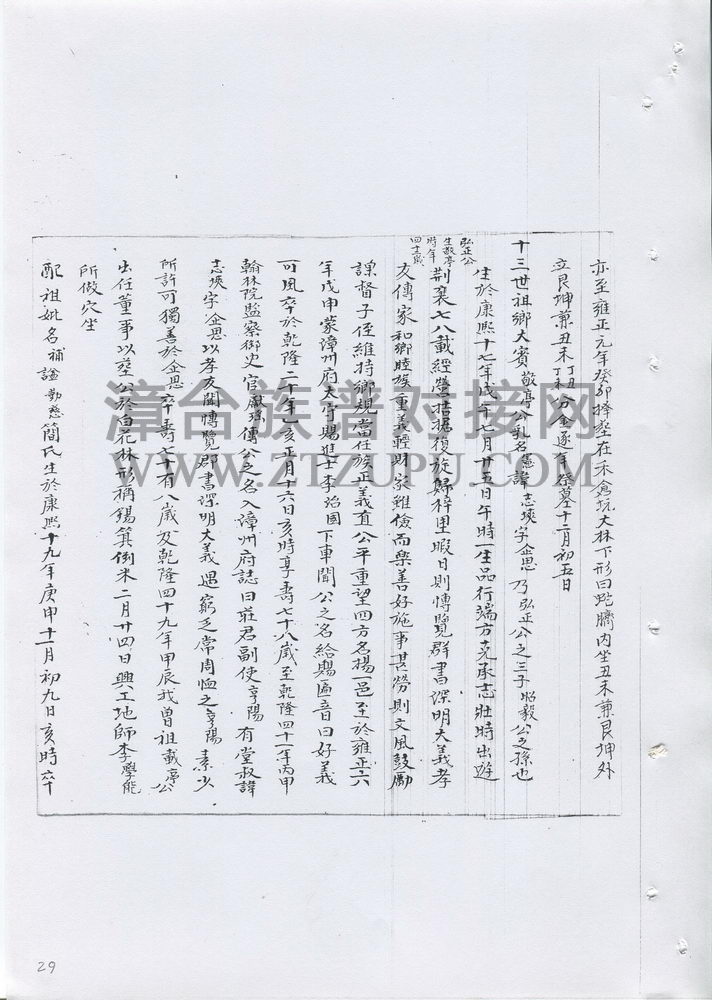 亦至雍正元年癸卯擇塟在禾倉坑大林下形曰蛇臍内坐丑未兼艮坤外
立艮坤兼丑未丁丑丁未分金逐年祭墓十二月初五日
十三世祖鄉大賓敬亭公乳名 諱志煐字企思乃弘正公之三子昭毅公之孫也
弘正公生敬亭時年四十三歲
生於康熙十七年戊午七月廿五日午時一生品行端方克承志壯時出遊
荆襄七八載經營拮据復旋歸梓里暇日則博覽群書深明大義孝
友傳家和鄉睦族重義輕財家雖儉而樂善好施事甚勞則文風鼓勵
課督子侄維持鄉規當任族正義直公平重望四方名揚一邑至於雍正六
年戊申蒙漳州府太守賜進士李治國下車聞公之名給賜匾音曰好義
可風卒於乾隆二十年乙亥正月十六日亥時享壽七十八歲至乾隆四十一年丙申
翰林院監察御史官獻瑤傳公之名入漳州府誌曰莊君副使亨陽有堂叔諱
志煐字企思以孝友聞博覽群書深明大義遇窮乏常周恤之亨陽素少
所許可獨善於企思卒壽七十有八歲及乾隆四十九年甲辰我曾祖載亭公
出任董事以塟公於白花林形稱錫箕倒米二月廿四日興工地師李學能
所做穴坐
配祖妣名補諡勤慈簡氏生於康熙十九年庚申十一月初九日亥時六十
漳台族谱对接网
WWW.ZTZUPU.COM
29